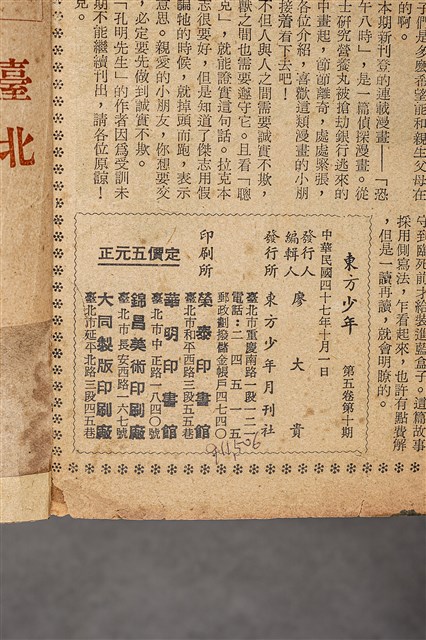 守到臨死前才給裝進藍盒子。這篇故事
採用側寫法，乍看起來，也許有點費解
，但是一讀再讀，就會明瞭的。
子們是多麼希望能和親生父母在
的啊。
本期新刊登的連載漫畫——「恐
午八時」，是一篇偵探漫畫。從
士研究營養丸被搶劫銀行逃來的
中畫起，節節離奇，處處緊張，
各位介紹，喜歡這類漫畫的小朋
接着看下去吧！
不但人與人之間需要誠實不欺，
獸之間也需要遵守它。且看「聰
克」，就能證實這句話。拉克本
志很要好，但是知道了傑志用假
騙牠的時候，就掉頭而跑，表示
意思。親愛的小朋友，你想要交
，必定要先做到誠實不欺。
「孔明先生」的作者因為受訓未
期不能繼續刊出，請各位原諒！
見。
東方少年 第五卷第十期
中華民國四十七年十月一日
發行人
編輯人 廖大貴
發行所 東方少年月刊社
臺北市重慶南路一段一二一
電話：二四五一五
郵政劃撥儲金帳戶四七四〇
印刷所 榮泰印書館
臺北市和平西路三段五五巷
華明印書館
臺北市中正路一八四〇號
錦昌美術印刷廠
臺北市長安西路一六七號
大同製版印刷廠
臺北市延平北路三段四五巷
定價五元正
911506
臺北